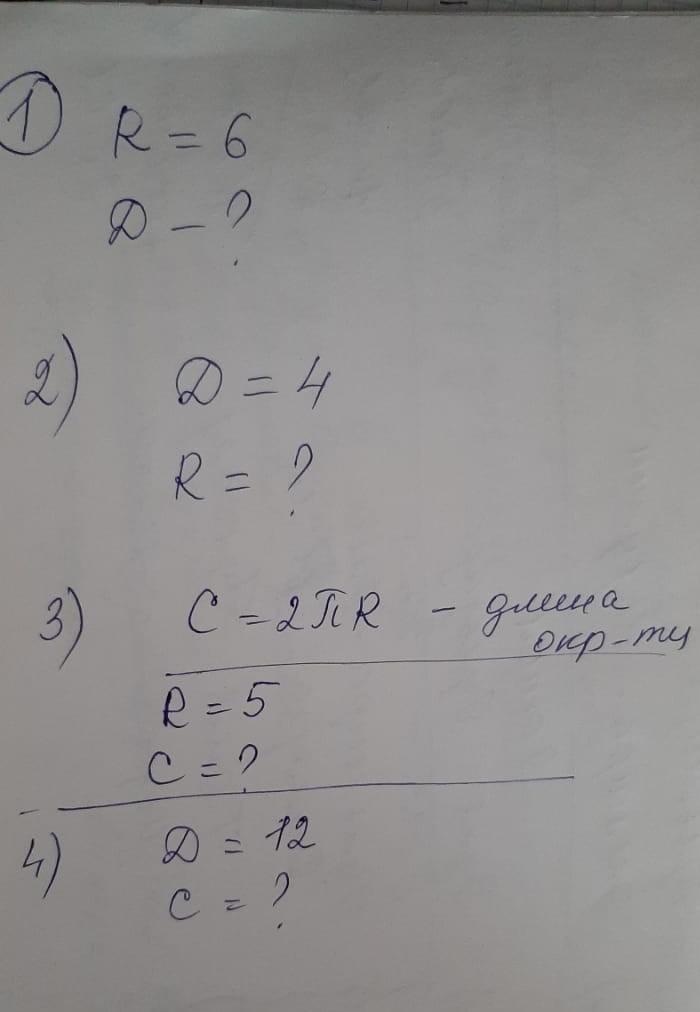 1 R = 6
D - ?
2) D = 4
R = ?
3) C = 2πR - длина
окр-ти
R = 5
C = ?
4) D = 12
C = ?